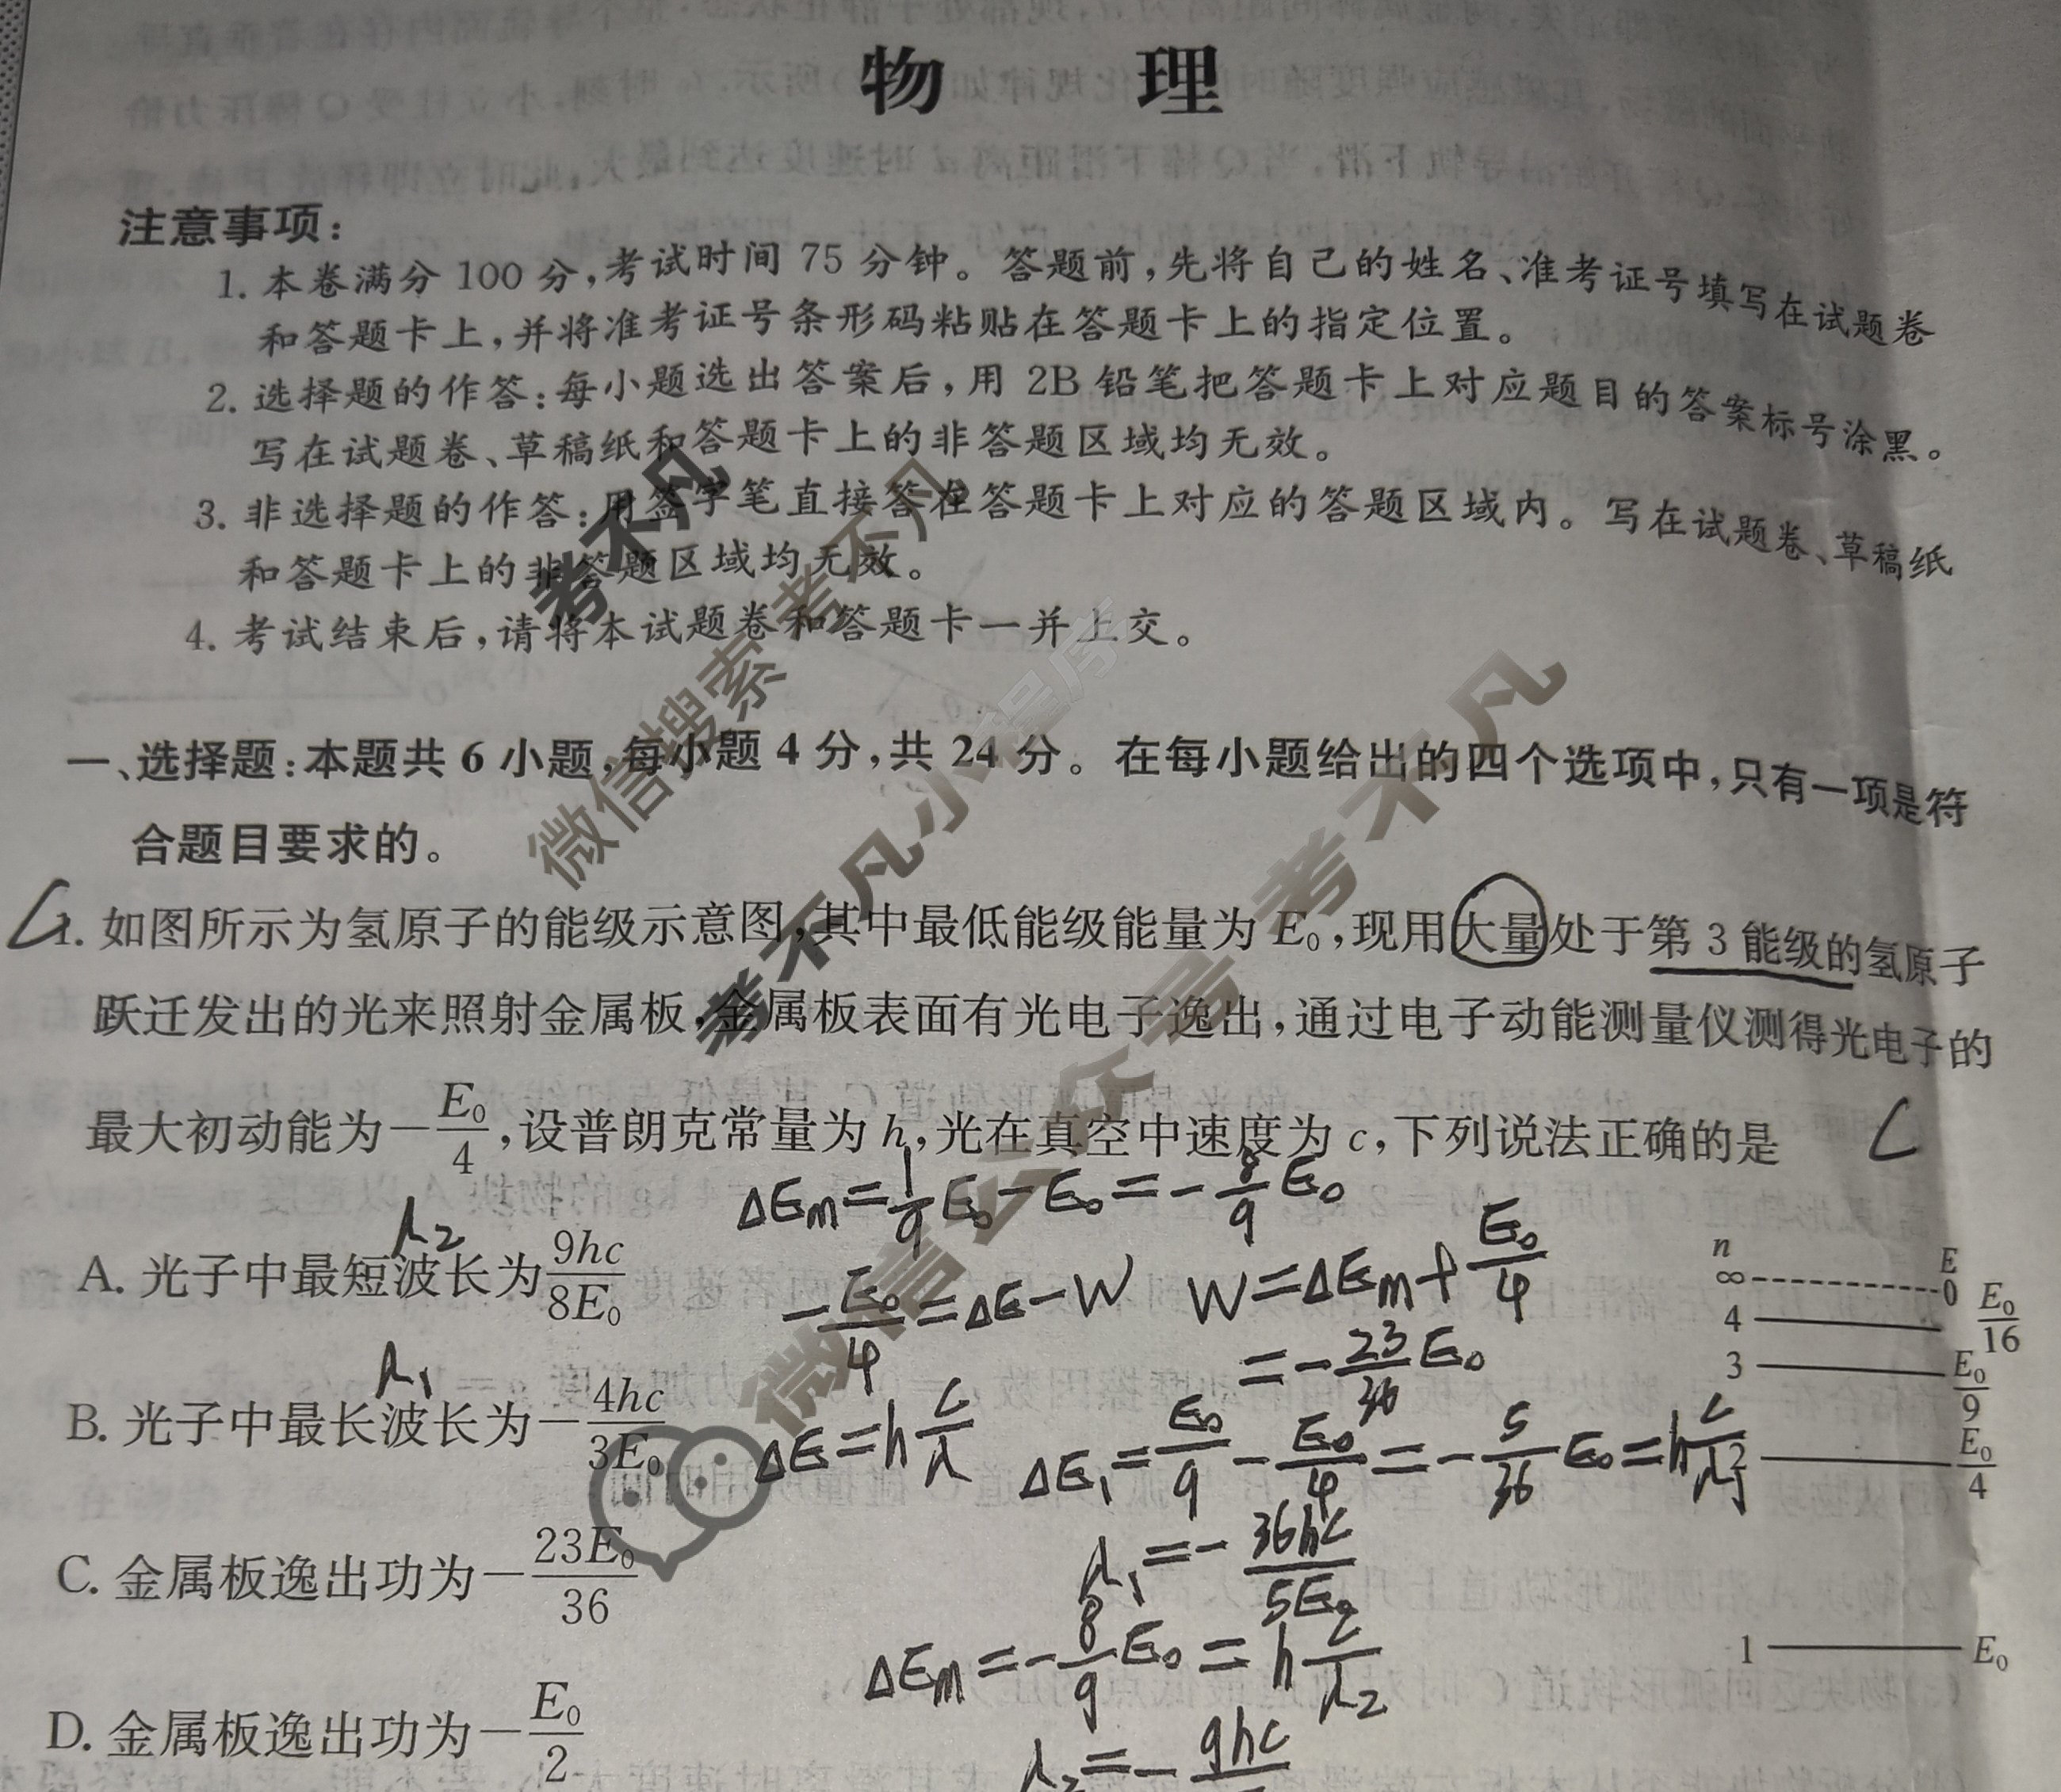 物 理
注意事项:
1. 本卷满分 100 分,考试时间 75 分钟。答题前,先将自己的姓名、准考证号填写在试题卷
和答题卡上,并将准考证号条形码粘贴在答题卡上的指定位置。
2. 选择题的作答:每小题选出答案后,用 2B 铅笔把答题卡上对应题目的答案标号涂黑。
写在试题卷、草稿纸和答题卡上的非答题区域均无效。
3. 非选择题的作答:用签字笔直接答在答题卡上对应的答题区域内。写在试题卷、草稿纸
和答题卡上的非答题区域均无效。
4. 考试结束后,请将本试题卷和答题卡一并上交。
一、选择题:本题共 6 小题,每小题 4 分,共 24 分。在每小题给出的四个选项中,只有一项是符
合题目要求的。
C 1. 如图所示为氢原子的能级示意图,其中最低能级能量为 E₀,现用大量处于第 3 能级的氢原子
跃迁发出的光来照射金属板,金属板表面有光电子逸出,通过电子动能测量仪测得光电子的
最大初动能为-E₀/4,设普朗克常量为 h,光在真空中速度为 c,下列说法正确的是 C
ΔEm=1/9E₀-E₀=-8/9E₀
λ₂
A. 光子中最短波长为9hc/8E₀
-E₀/4=ΔE-W W=ΔEm+E₀/4
=-23/36E₀
λ₁
B. 光子中最长波长为-4hc/3E₀
ΔE=hc/λ ΔE₁=E₀/9-E₀/4=-5/36E₀=hc/λ₁
λ₁=-36hc/5E₀
C. 金属板逸出功为-23E₀/36
ΔEm=-8/9E₀=hc/λ₂
D. 金属板逸出功为-E₀/2
λ₂=-9hc
n E
∞ 0
4 E₀/16
3 E₀/9
2 E₀/4
1 E₀
考不凡
微信搜索 考不凡
考不凡小程序
微信公众号 考不凡